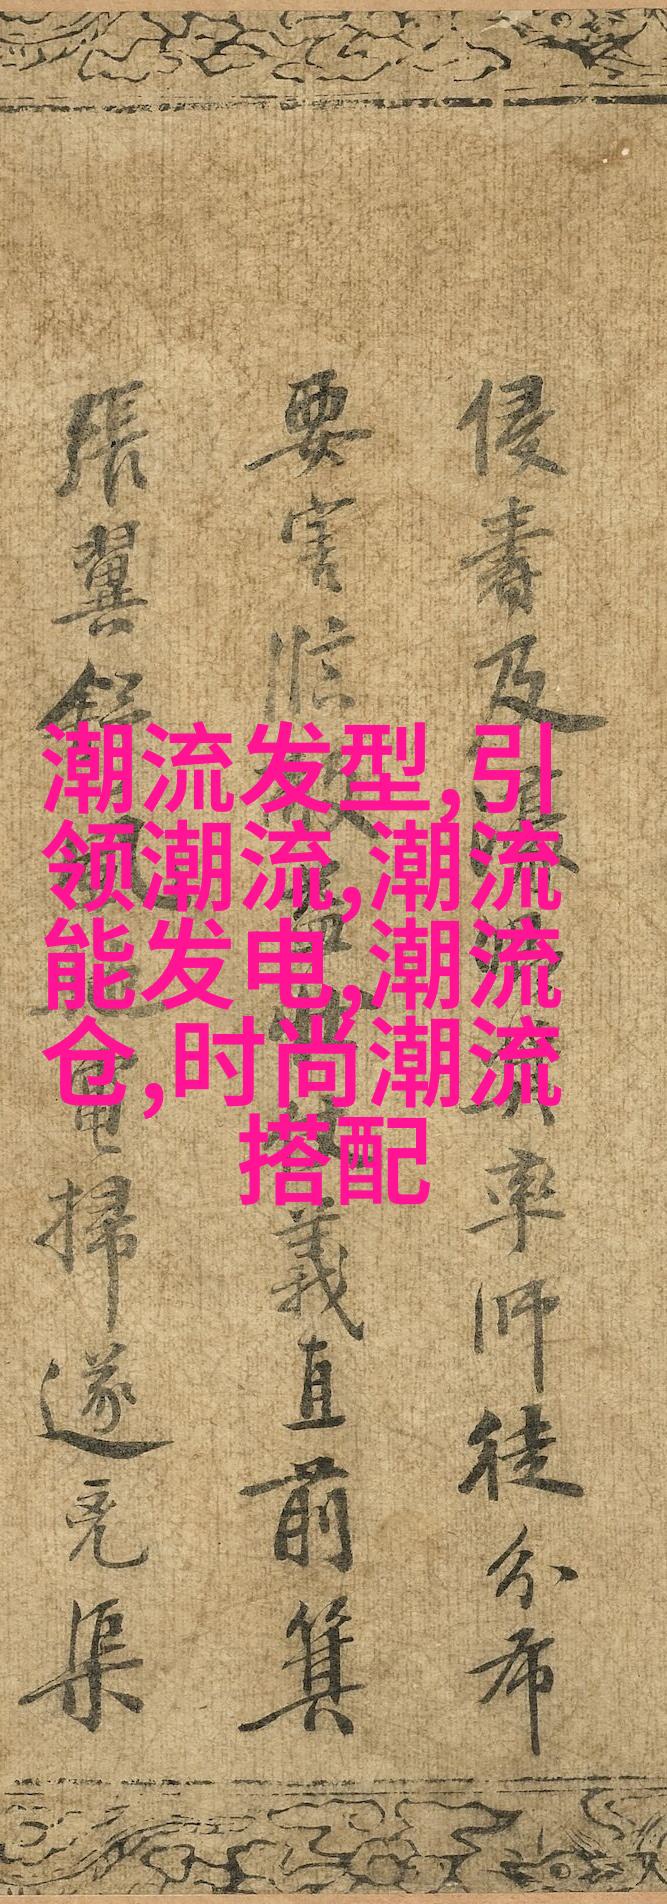 潮流发型,引
领潮流,潮流
能发电,潮流
仓,时尚潮流
搭配
侵書及率師徒分布
要害臨敵義直前箕
張翼電掃遂克渠